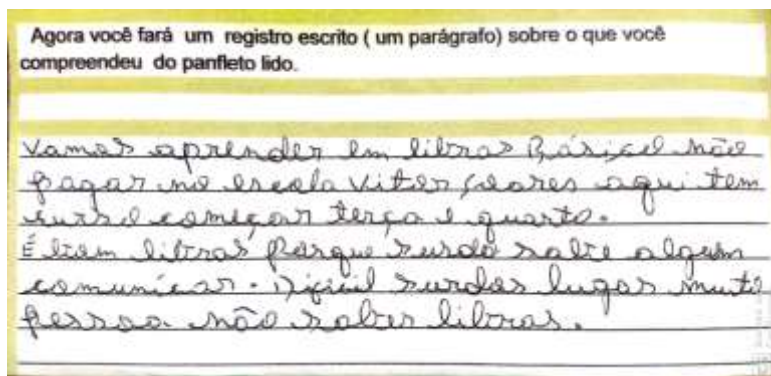 Agora você fará um registro escrito ( um parágrafo) sobre o que você
compreendeu do panfleto lido.
Vamos aprender em libras Básicel não
pagar no escola Vitor Soares aqui tem
curso começar terça e quarto.
É bom libras porque surdo sabe alguem
comunicar. Dificil surdos lugar muito
pessoa não saber libras.